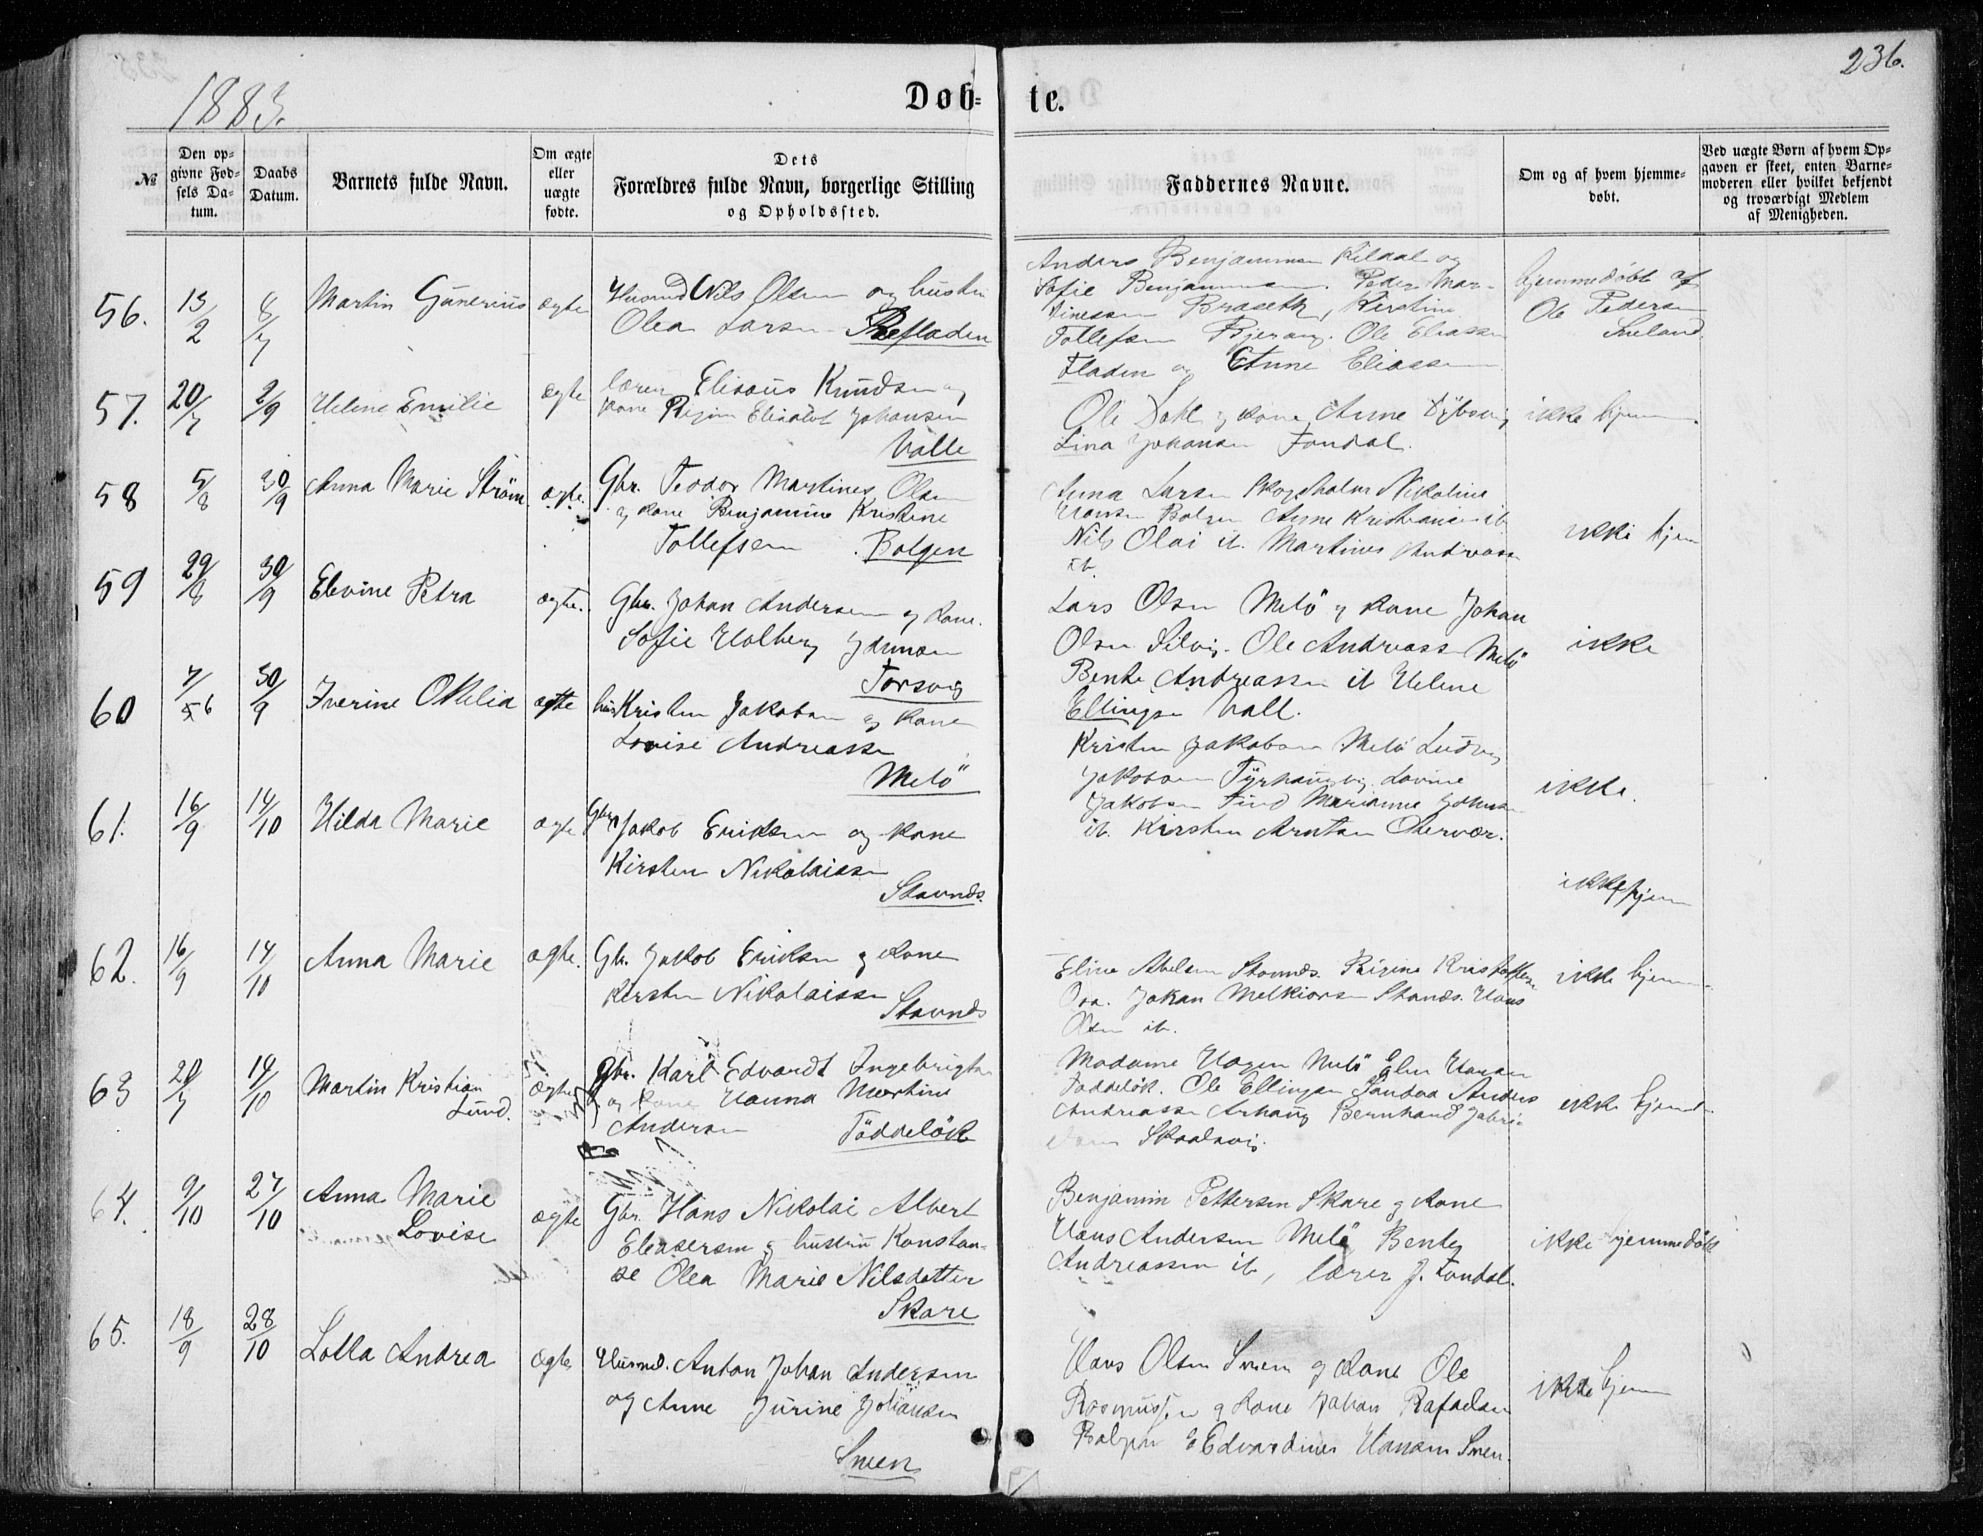 236.
1883.
Døb- te.
№
Den opgivne Fødsels Datum.
Daabs Datum.
Barnets fulde Navn.
Om ægte eller uægte fødte.
Dets Forældres fulde Navn, borgerlige Stilling og Opholdssted.
Faddernes Navne.
Om og af hvem hjemmedøbt.
Ved uægte Børn af hvem Opgaven er skeet, enten Barnemoderen eller hvilket bekjendt og troværdigt Medlem af Menigheden.
56. 13/2 8/7 Martin Gunerius ægte
Husmd Nils Olsen og hustru
Olea Larsen
Anders Benjaminsen Kildal og
Sofie Benjaminsen. Peder Mar-
tinessen Braseth, Kirstine
Tollefsen Bjerang. Ole Eliassen
Fladen og Anne Eliassen
hjemmedøbt af
Ole Pedersen
57. 20/7 2/9 Helene Emilie ægte
lærer Elisæus Knudsen og
kone Elisabet Johansen
Valle
Ole Dahl og kone Anne
Lina Johansen Fondal.
ikke hjem
58 5/8 30/9 Anna Marie Strøm ægte.
Gbr. Teodor Martines Olsen
og kone Benjamine Kristine
Tollefsen Bolgen
Anna Larsen Skogsholm Nikoline
Hansen Bolgen Anne Kristiansen ib
Nils Olai ib. Martines Andreassen
ib.
ikke hjem
59 29/8 30/9 Elevine Petra ægte.
Gbr. Johan Andersen og kone
Sofie Holberg
Torsvig
Lars Olsen Melö og kone Johan
Olsen Ole Andreassen Melö
Bente Andreassen ib Helene
Ellingsen Vall.
ikke
60 7/6 30/9 Iverine Otilia ægte
hus Kristen Jakobsen og kone
Lovise Andreassen
Melö
Kristen Jakobsen Melö Ludvig
Jakobsen Lovine
Jakobsen Marianne Johnsen
ib. Kirsten Arntsen Otervær.
ikke.
61. 16/9 14/10 Hilda Marie ægte
Gbr Jakob Eriksen og kone
Kirsten Nikolaissen
Stavnds.
ikke hjem
62. 16/9 14/10 Anna Marie ægte.
Gbr. Jakob Eriksen og kone
Kirsten Nikolaissen
Stavnds
Eline Abelsen Stavnds. Regine Kristoffersen
Johan Melkiorsen Stavnds. Hans
Olsen ib.
ikke hjem
63 20/7 14/10 Martin Kristian
Lund. ægte
Gbr. Karl Edvardt Ingebrigtsen
og kone Hanna Martine
Andersen Töddelök
Madame Hagen Melö Elen Hansen
Töddelök. Ole Ellingsen Sandvaa Anders
Andreassen Arhaug Bernhard
ikke hjem
64. 9/10 27/10 Anna Marie
Lovise ægte
Gbr. Hans Nikolai Albert
Eleasersen og hustru Konstan-
se Olea Marie Nilsdatter
Skare
Benjamin Pettersen Skare og kone
Hans Andersen Melö Bente
Andreassen ib, lærer J. Fondal.
ikke hjemmedöbt
65. 18/9 28/10 Lolla Andrea ægte
Husmd. Anton Johan Andersen
og Anne Jurine Johansen
Sneen
Hans Olsen Sneen og kone Ole
Rasmussen og kone Johan Rafaelsen
Bolgen Edvardine Hansen Sneen.
ikke hjem